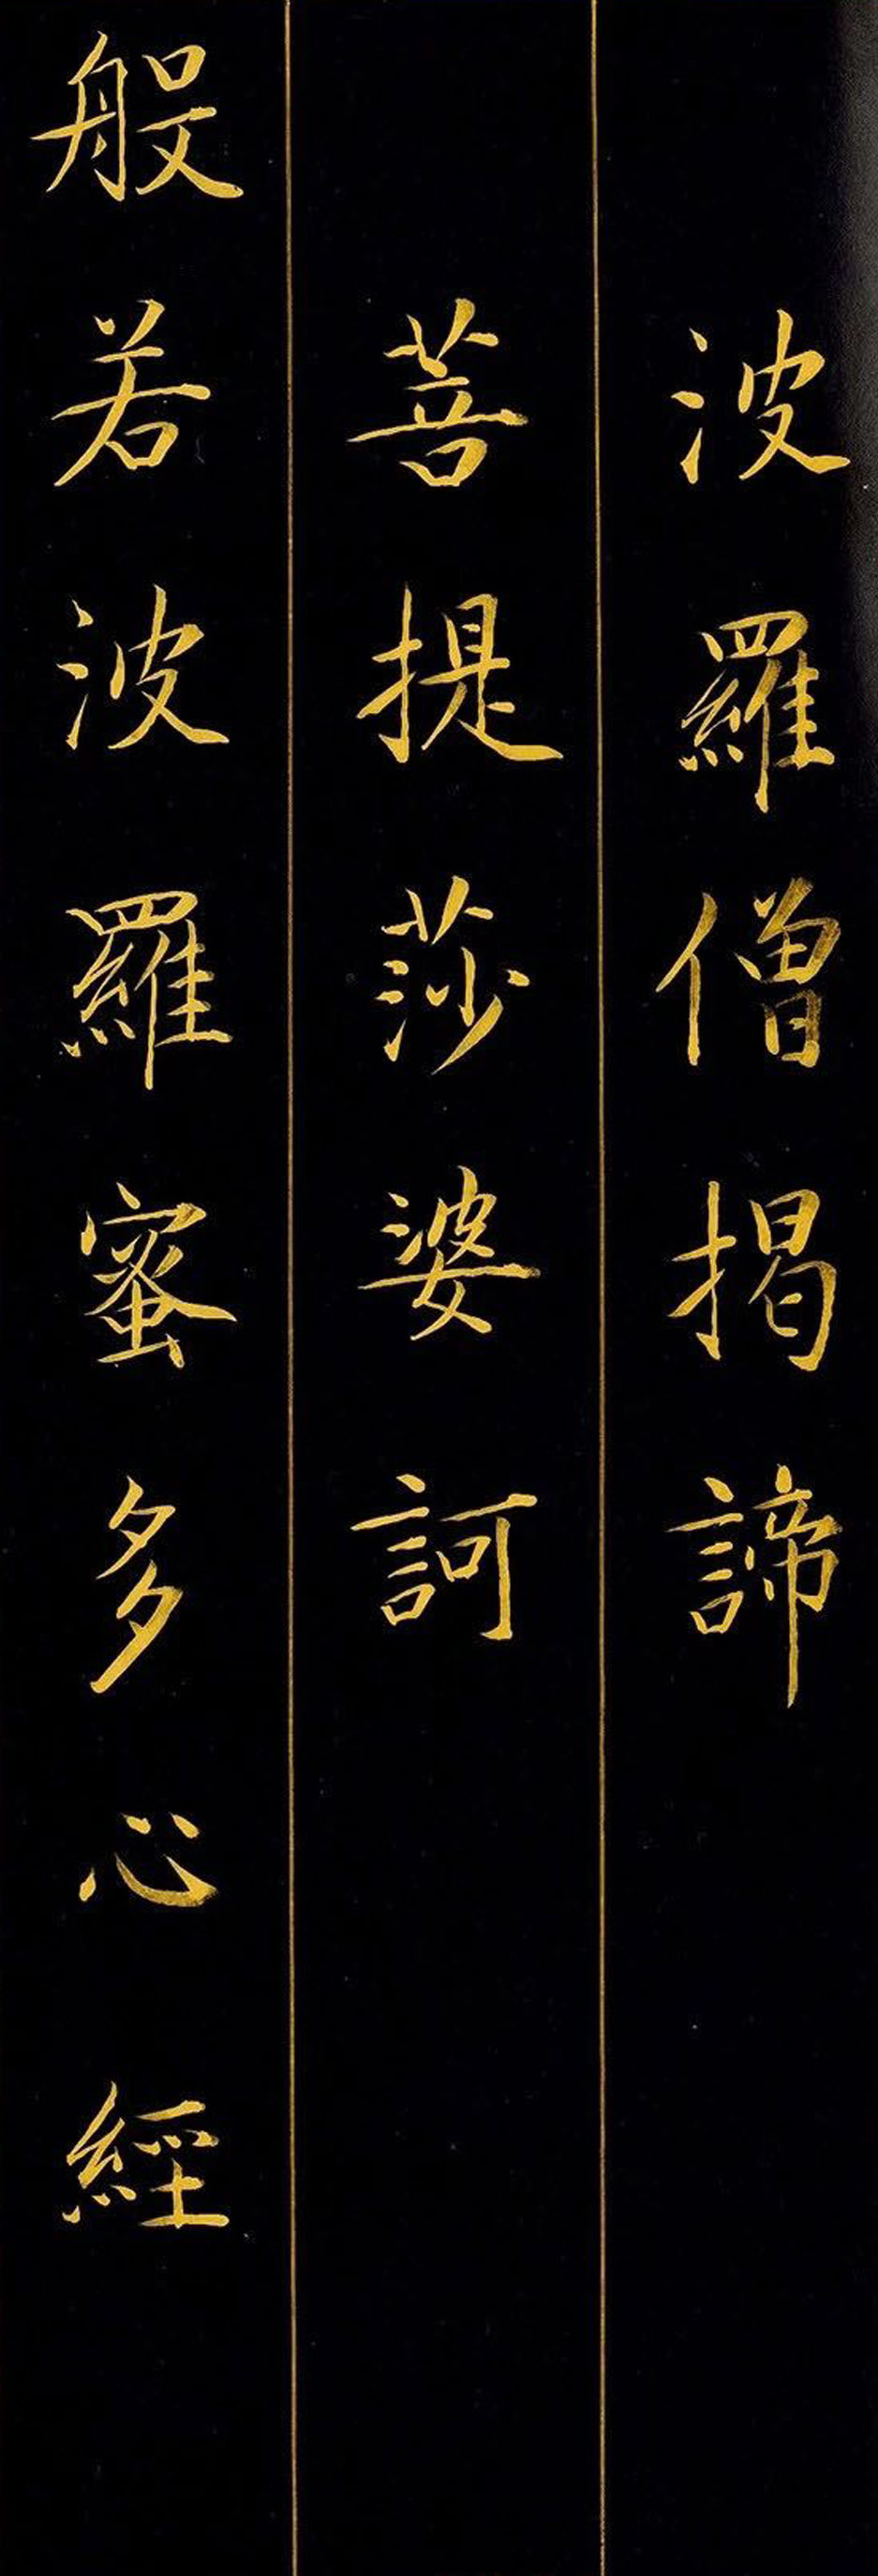 波羅僧揭諦
菩提莎婆訶
般若波羅蜜多心經